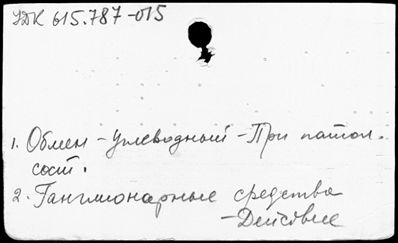 УДК 615.787-015
1. Обмен - Углеводный - При патол.
сост.
2. Ганглионарные средства
- Действие